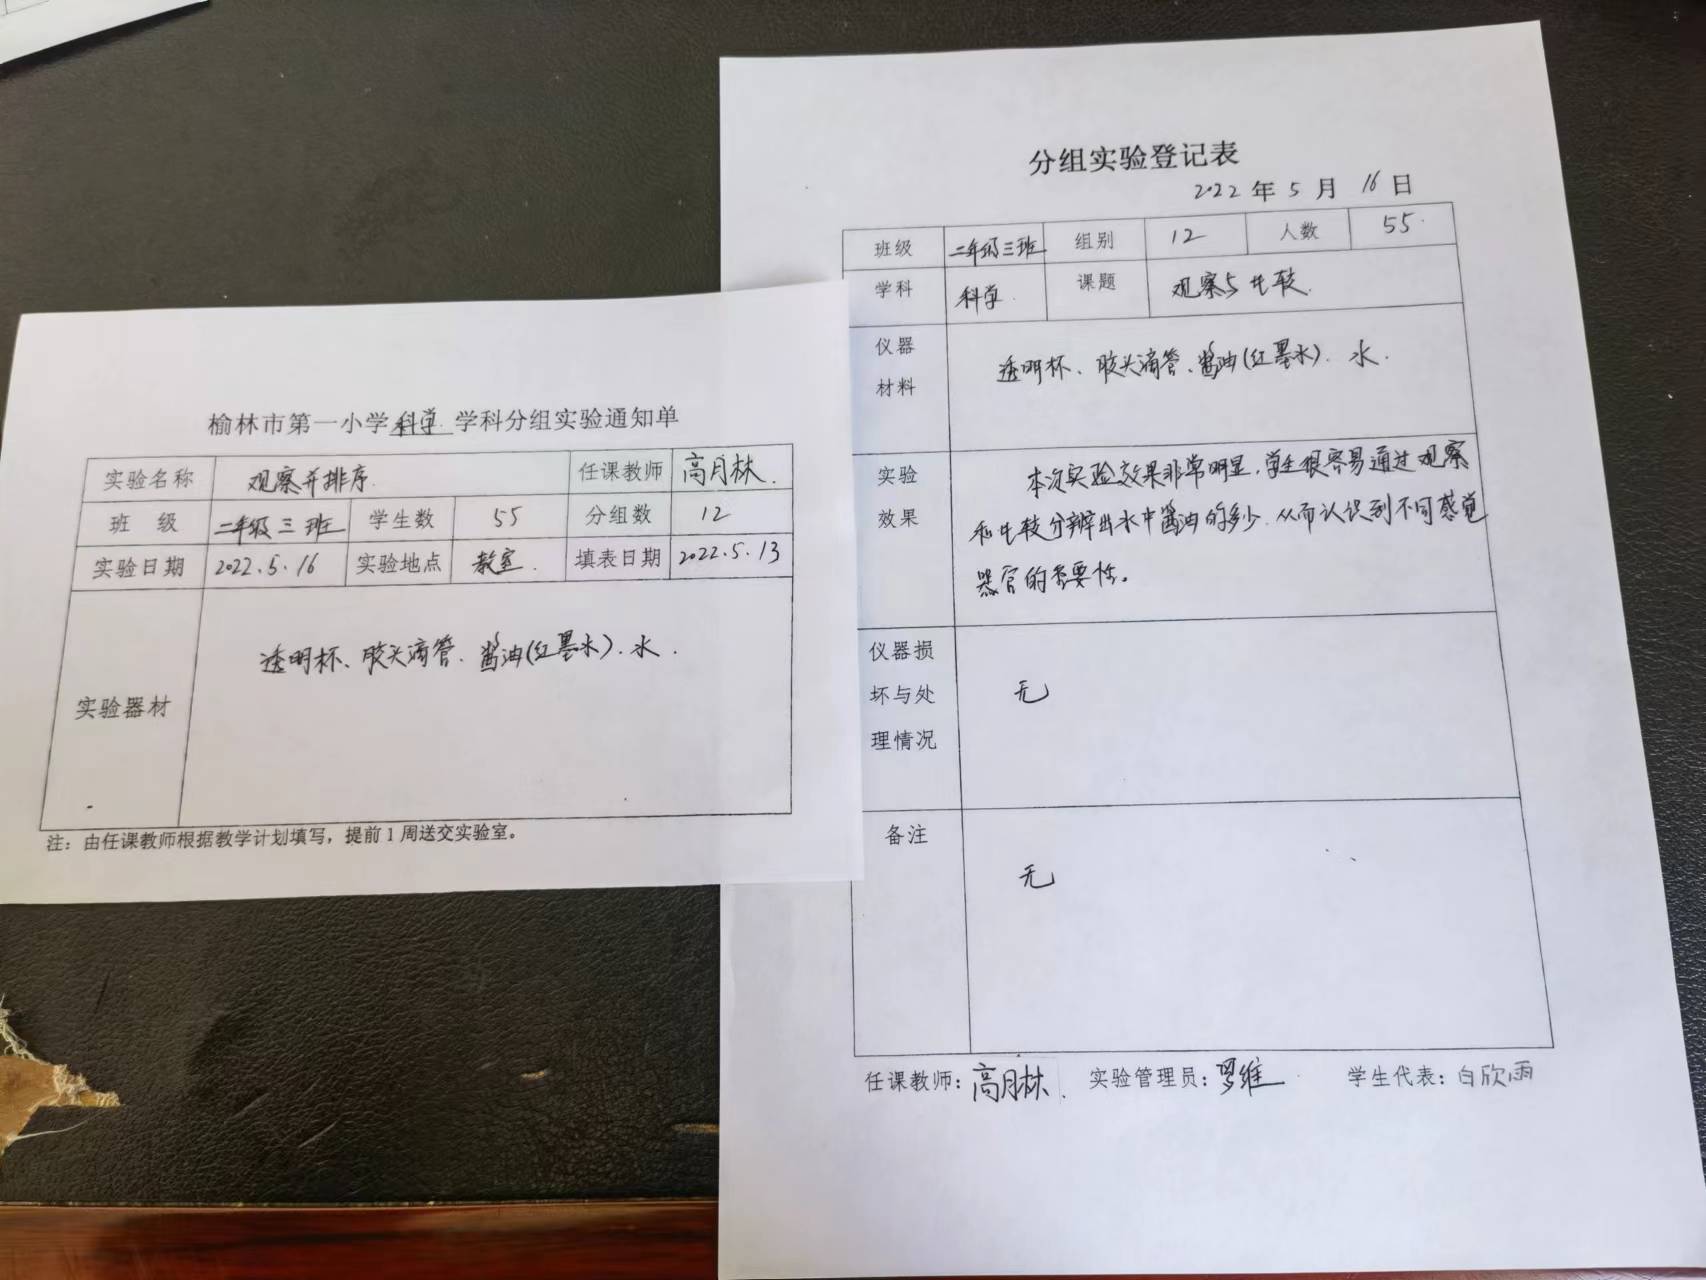 榆林市第一小学科学学科分组实验通知单
实验名称 观察并排序 任课教师 高月林
班级 二年级三班 学生数 55 分组数 12
实验日期 2022.5.16 实验地点 教室 填表日期 2022.5.13
实验器材 透明杯、胶头滴管、酱油(红墨水)、水
注：由任课教师根据教学计划填写，提前1周送交实验室。
分组实验登记表
2022年5月16日
班级 二年级三班 组别 12 人数 55
学科 科学 课题 观察与比较
仪器
材料
透明杯、胶头滴管、酱油(红墨水)、水
实验
效果
本次实验效果非常明显，学生很容易通过观察
和比较分辨出水中酱油的多少，从而认识到不同感觉
器官的重要性。
仪器损
坏与处
理情况
无
备注
无
任课教师：高月林 实验管理员：罗维 学生代表：白欣雨